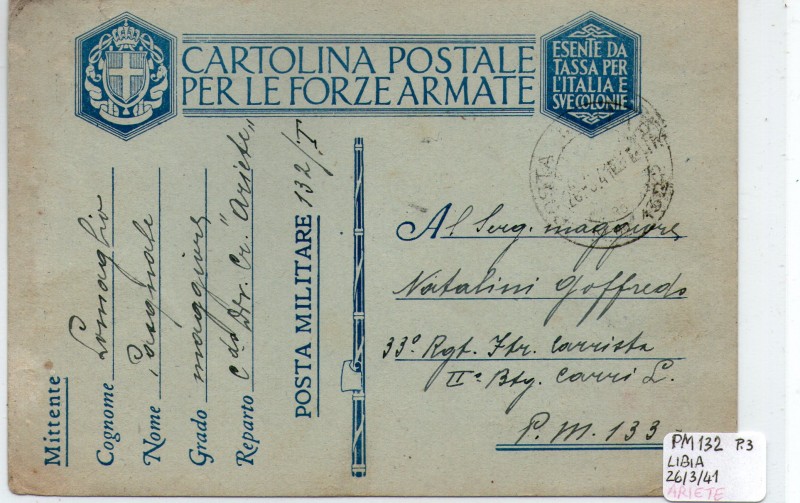 CARTOLINA POSTALE
PER LE FORZE ARMATE
ESENTE DA
TASSA PER
L'ITALIA E
SVE COLONIE
Mittente
Cognome Lomaglio
Nome Pasquale
Grado maggiore
Reparto C do Div. Cr. "Ariete"
POSTA MILITARE 132/T
POSTA
Al Serg. maggiore
Natalini Goffredo
33° Rgt. Ftr. Carrista
II° Btg. Carri L.
P.M. 133
PM 132 P.3
LIBIA
26/3/41
ARIETE